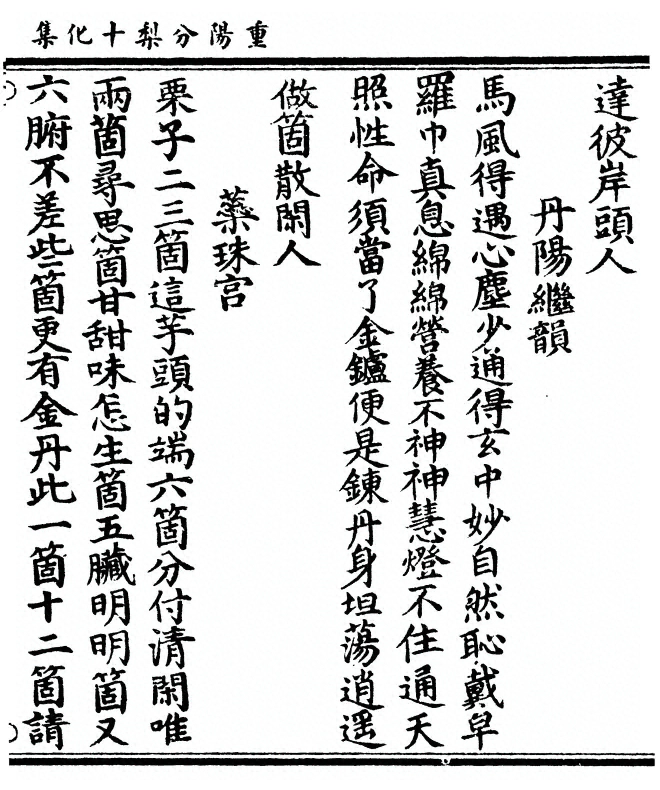 重陽分梨十化集
達彼岸頭人
丹陽繼韻
馬風得遇心塵少通得玄中妙自然恥戴皁
羅巾真息綿綿營養不神神慧燈不住通天
照性命須當了金鑪便是鍊丹身坦蕩逍遥
做箇散閑人
蘂珠宮
栗子二三箇這芋頭的端六箇分付清閑唯
兩箇尋思箇甘甜味怎生箇五臟明明箇又
六腑不差些箇更有金丹此一箇十二箇請